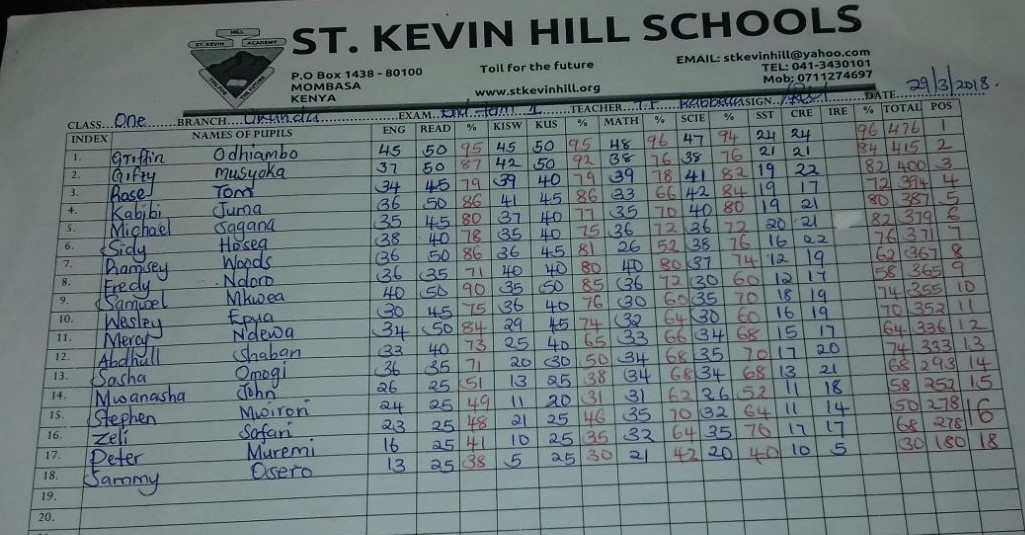 HILL
ST. KEVIN ACADEMY
ST. KEVIN HILL SCHOOLS
P.O Box 1438 - 80100
MOMBASA
KENYA
Toil for the future
www.stkevinhill.org
EMAIL: stkevinhill@yahoo.com
TEL: 041-3430101
Mob: 0711274697
CLASS One BRANCH Ukunda EXAM End Term 1 TEACHER SIGN DATE 29/3/2018.
INDEX NAMES OF PUPILS ENG READ % KISW KUS % MATH % SCIE % SST CRE IRE % TOTAL POS
1. Griffin Odhiambo 45 50 95 45 50 95 48 96 47 94 24 24 96 476 1
2. Gifty Musyoka 37 50 87 42 50 92 38 76 38 76 21 21 84 415 2
3. Rose Tom 34 45 79 39 40 79 39 78 41 82 19 22 82 400 3
4. Kabibi Juma 36 50 86 41 45 86 33 66 42 84 19 17 72 394 4
5. Michael Sagana 35 45 80 37 40 77 35 70 40 80 19 21 80 387 5
6. Sidy Hosea 38 40 78 35 40 75 36 72 36 72 20 21 82 379 6
7. Ramsey Woods 36 50 86 36 45 81 26 52 38 76 16 22 76 371 7
8. Fredy Ndoro 36 35 71 40 40 80 40 80 37 74 12 19 62 367 8
9. Samwel Mkwea 40 50 90 35 50 85 36 72 30 60 12 17 58 365 9
10. Wesley Epua 30 45 75 36 40 76 30 60 35 70 18 19 74 355 10
11. Mercy Ndewa 34 50 84 29 45 74 32 64 30 60 16 19 70 352 11
12. Abdhull Shaban 33 40 73 25 40 65 33 66 34 68 15 17 64 336 12
13. Sasha Omogi 36 35 71 20 30 50 34 68 35 70 17 20 74 333 13
14. Mwanasha John 26 25 51 13 25 38 34 68 34 68 13 21 68 293 14
15. Stephen Mwirori 24 25 49 11 20 31 31 62 26 52 11 18 58 252 15
16. Zeli Safari 23 25 48 21 25 46 35 70 32 64 11 14 50 278 16
17. Peter Muremi 16 25 41 10 25 35 32 64 35 70 17 17 68 278
18. Sammy Osero 13 25 38 5 25 30 21 42 20 40 10 5 30 180 18
19.
20.